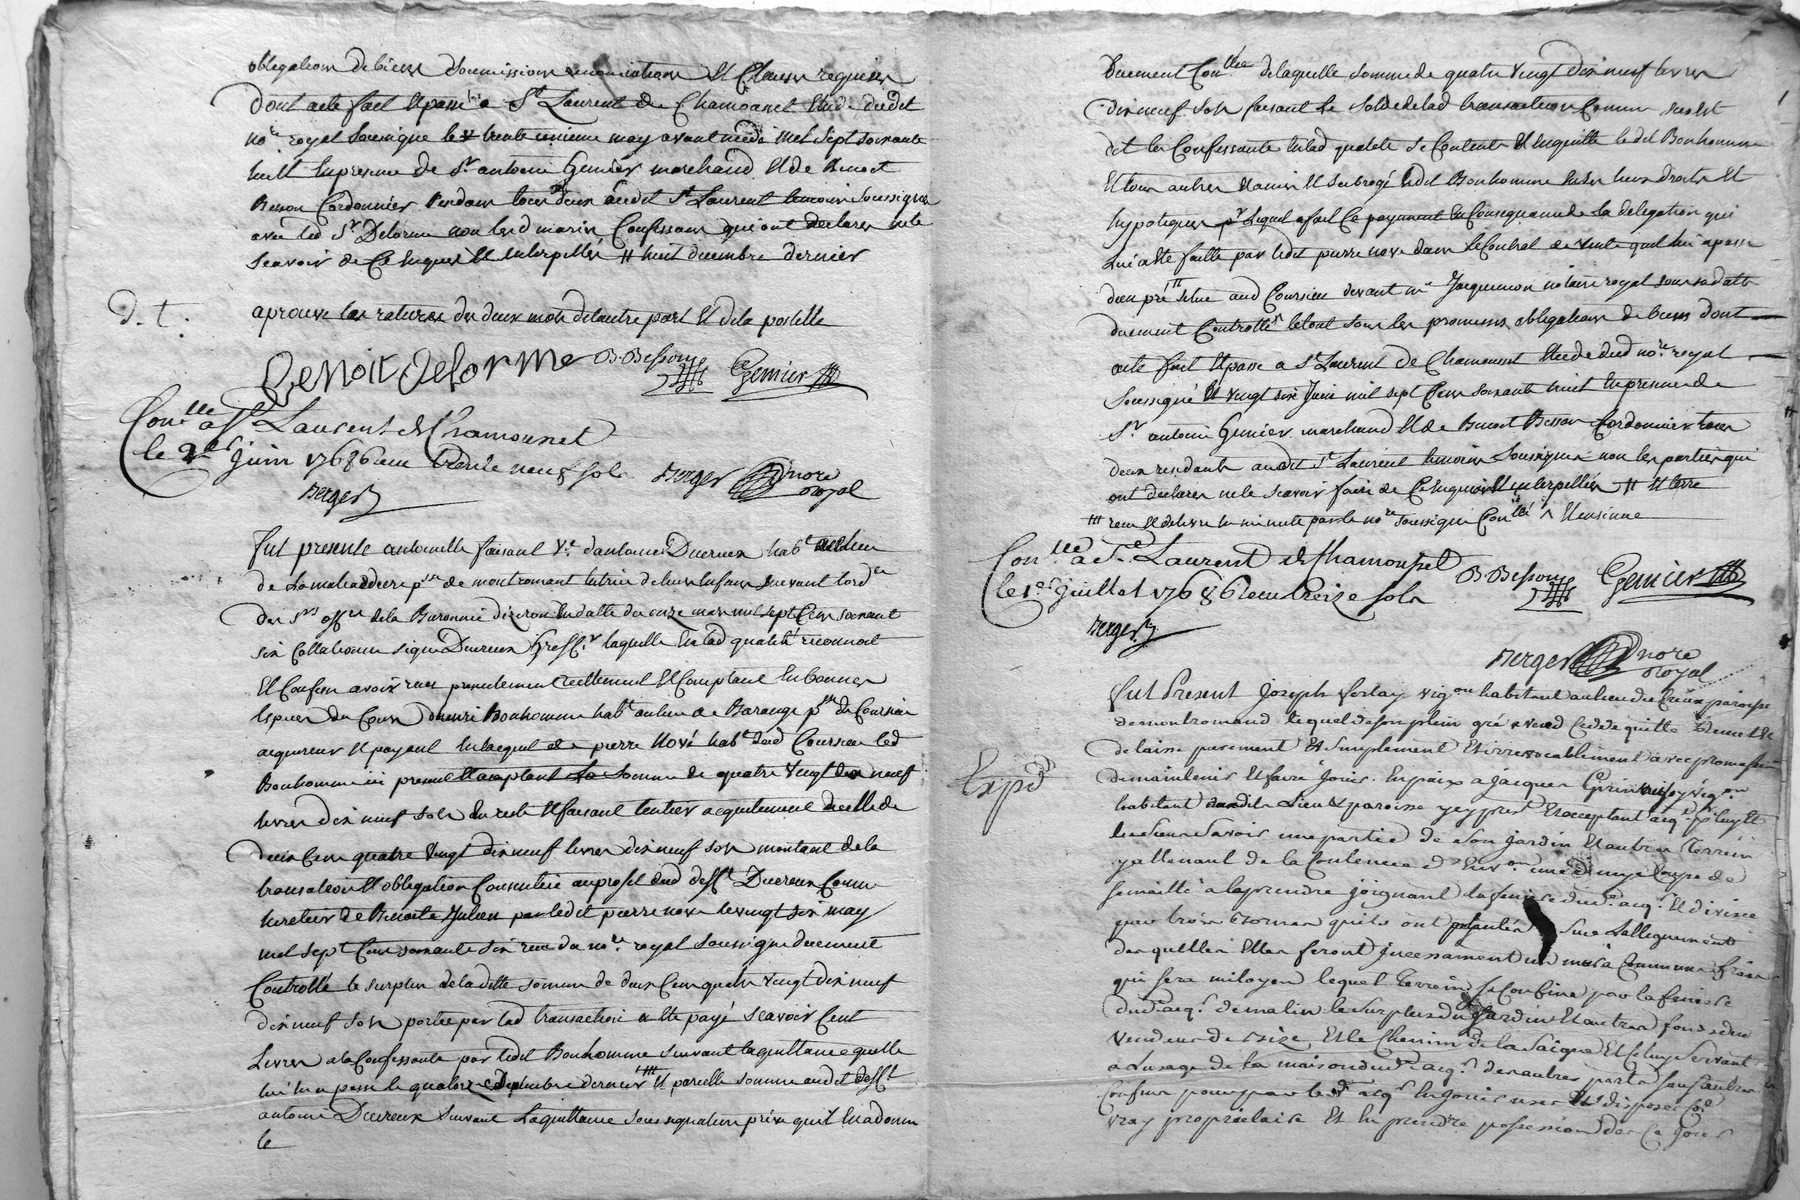 obligations de biens soumissions renonciations et Clauses requises
dont acte fait et passé a St Laurent de Chamousset Etude dudit
nore royal soussigné le trente unieme may avant midy mil sept soixante
huit en presence de Sr antoine Genier marchand et de Benoit
Besson Cordonnier residans tous deux audit St Laurent temoins soussignes
avec led Sr Delorme non led marin Confessant qui ont declarés ne le
scavoir de Ce enquis et interpellés # huit decembre dernier
D. t.
aprouve les ratures de deux mots de lautre part et de la postille
Benoit Delorme B. Besson Genier
Conlle a St Laurent de Chamousset
le 2es juin 1768 Reçu trente neuf sols
Berger
Berger nore royal
fut presente antoinette faisant Ve dantoine Ducreux habte au lieu
de pse de montromant tutrice de leurs enfans suivant lordce
des Srs offers de la Baronnie en datte du onze mars mil sept Cens soixant
six Collationné signé Ducreux Greffr laquelle en lad qualité reconnoit
Et Confesse avoir recu presentement reellement et Comptant en bonnes
Especes de Cours Bonhomme habt au lieu de Barange pse de Coursieu
acquereur et payant en lacquit de pierre Nové habt dud Coursieu led
Bonhomme ici present et acceptant la somme de quatre vingt dix neuf
livres dix neuf sols du reste et faisant lentier acquitement de celle de
deux Cens quatre vingt dix neuf livres dix neuf sols montant de la
transaction et obligation Consentie au profit dud defft Ducreux Comme
heretier de Benoite Julien par ledit pierre nove le vingt six may
mil sept Cens soixante six recue du nore royal soussigné duement
Controllé le surplus de la ditte somme de deux Cens quatre vingt dix neuf
dix neuf sols portée par lad transaction a eté payé scavoir Cent
Livres a la Confessante par ledit Bonhomme suivant la quittance quelle
lui en a passé le quatorze # et pareille somme audit defft
antoine Ducreux suivant la quittance sous signature privé quil en a donné
le
duement Conllée de laquelle somme de quatre vingt dix neuf livres
dix neuf sols faisant le solde de lad transaction Comme susdit
dit la Confessante en lad qualité se Contente et en quitte le dit Bonhomme
et tous autres et a mis et subrogé ledit Bonhomme en ses lieux droits et
hypoteques pr lequel a fait Ce payement en Consequence de la delegation qui
lui a eté faitte par ledit pierre nove dans le Contrat de vente quil lui a passé
dun pré situé aud Coursieu devant me Jacquemon notaire royal sous sa datte
duement Controllé le tout sous les promesses obligations de biens dont
acte fait et passé a St Laurent de Chamousset Etude dud nore royal
soussigné le vingt six Juin mil sept Cens soixante huit en presence de
Sr antoine Genier marchand et de Benoit Besson Cordonnier tous
deux residants audit St Laurent temoins soussignes non les parties qui
ont declarés ne le scavoir faire de Ce enquis et interpellés #
recu et delivré la minute par le nore soussigné Conllé
Conlle a St Laurent de Chamousset B. Besson Genier
le 1er juillet 1768 Reçu treize sols
Berger
Berger nore royal
Expd
fut Present Joseph vignon habitant au lieu de paroisse
de montromand lequel de son plein gré a vend Cedde quitte Remet et
delaisse purement et simplement et irrevocablement avec promesse
de maintenir et faire jouir en paix a jacques vignon
habitant dudit Lieu et paroisse y cy present et acceptant acqr pr luy Et
les siens scavoir une partie de son jardin et autre Terrein
y attenant de la Contenue d'Environ une coupe de
semaille a la prendre joignant la feniere dud acqr et divisé
par trois Bornes qu'ils ont plantés sur Lallignement
desquelles Elles feront incessament un mur a Commun frais
qui sera mitoyen lequel Terrein se Confine par la feniere
dud acqr de matin le surplus du jardin et autres fonds du
vendeur de Bize et le Chemin de la et servant
a Lusage de la maison dud acqr des autres parts sauf autres
Confins pour par led acqr en jouir user et disposer Coe
vray proprietaire et en prendre possession des Ce jour